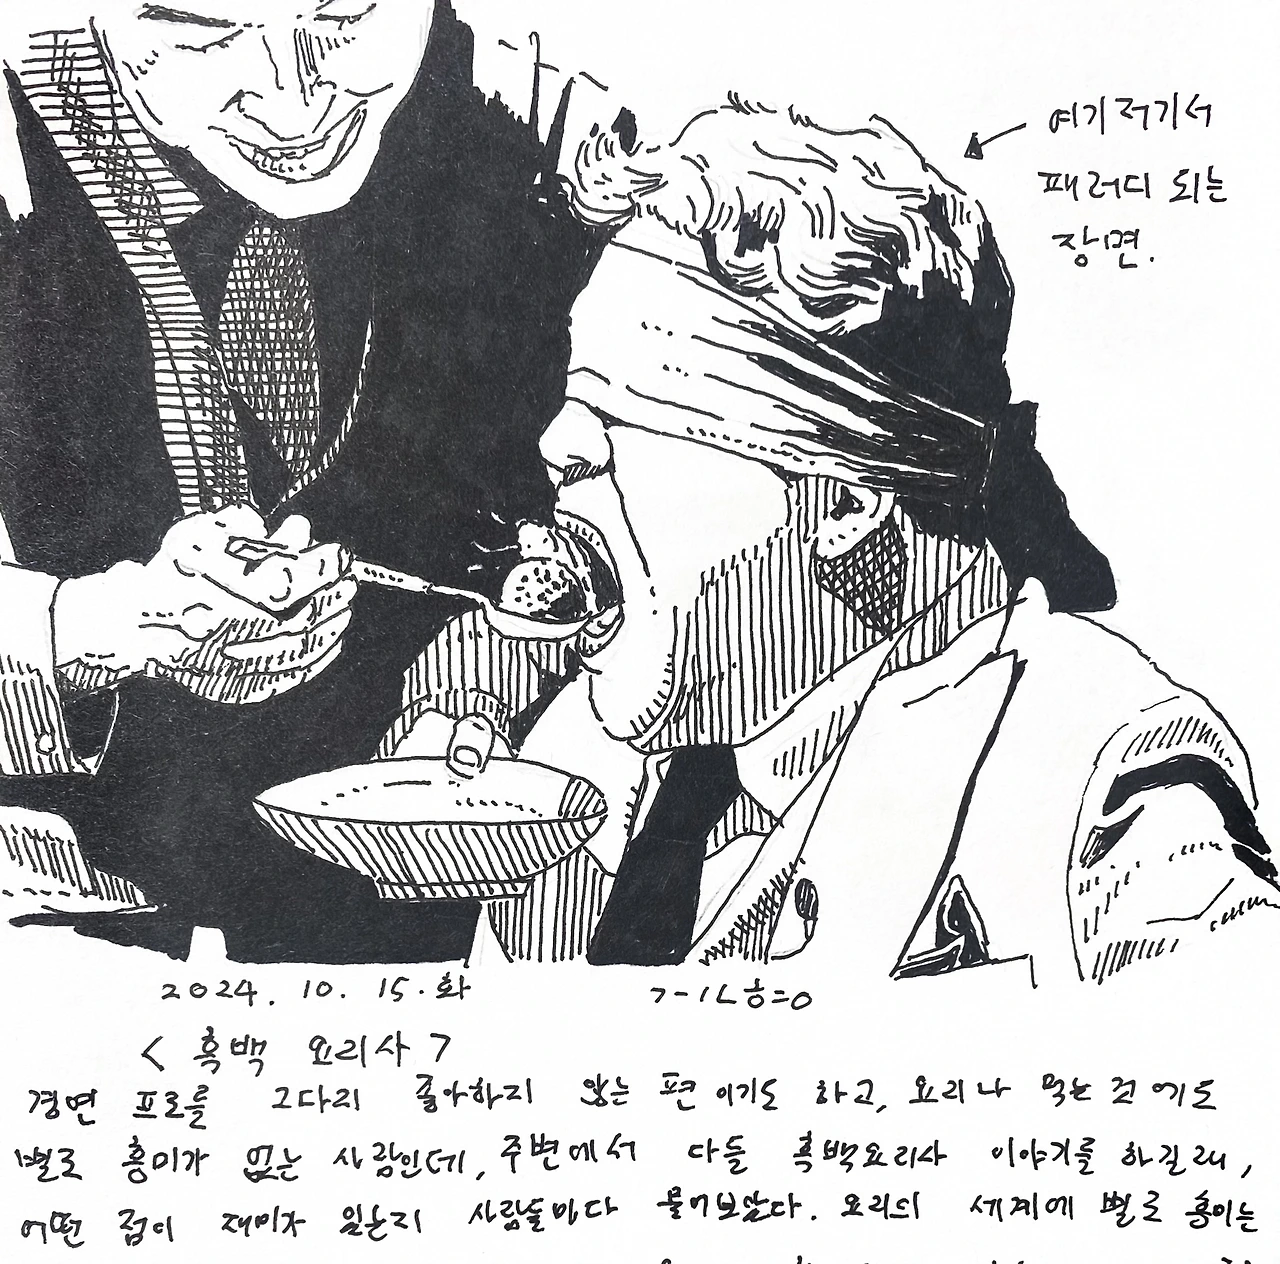 여기저기서
패러디 되는
장면.
2024. 10. 15. 화
<흑백 요리사>
경연 프로를 그다리 좋아하지 않는 편이기도 하고, 요리나 먹는 것에도
별로 흥미가 없는 사람인데, 주변에서 다들 흑백요리사 이야기를 하길래,
어떤 점이 재미가 있는지 사람들마다 물어보았다. 요리의 세계에 별로 흥미는